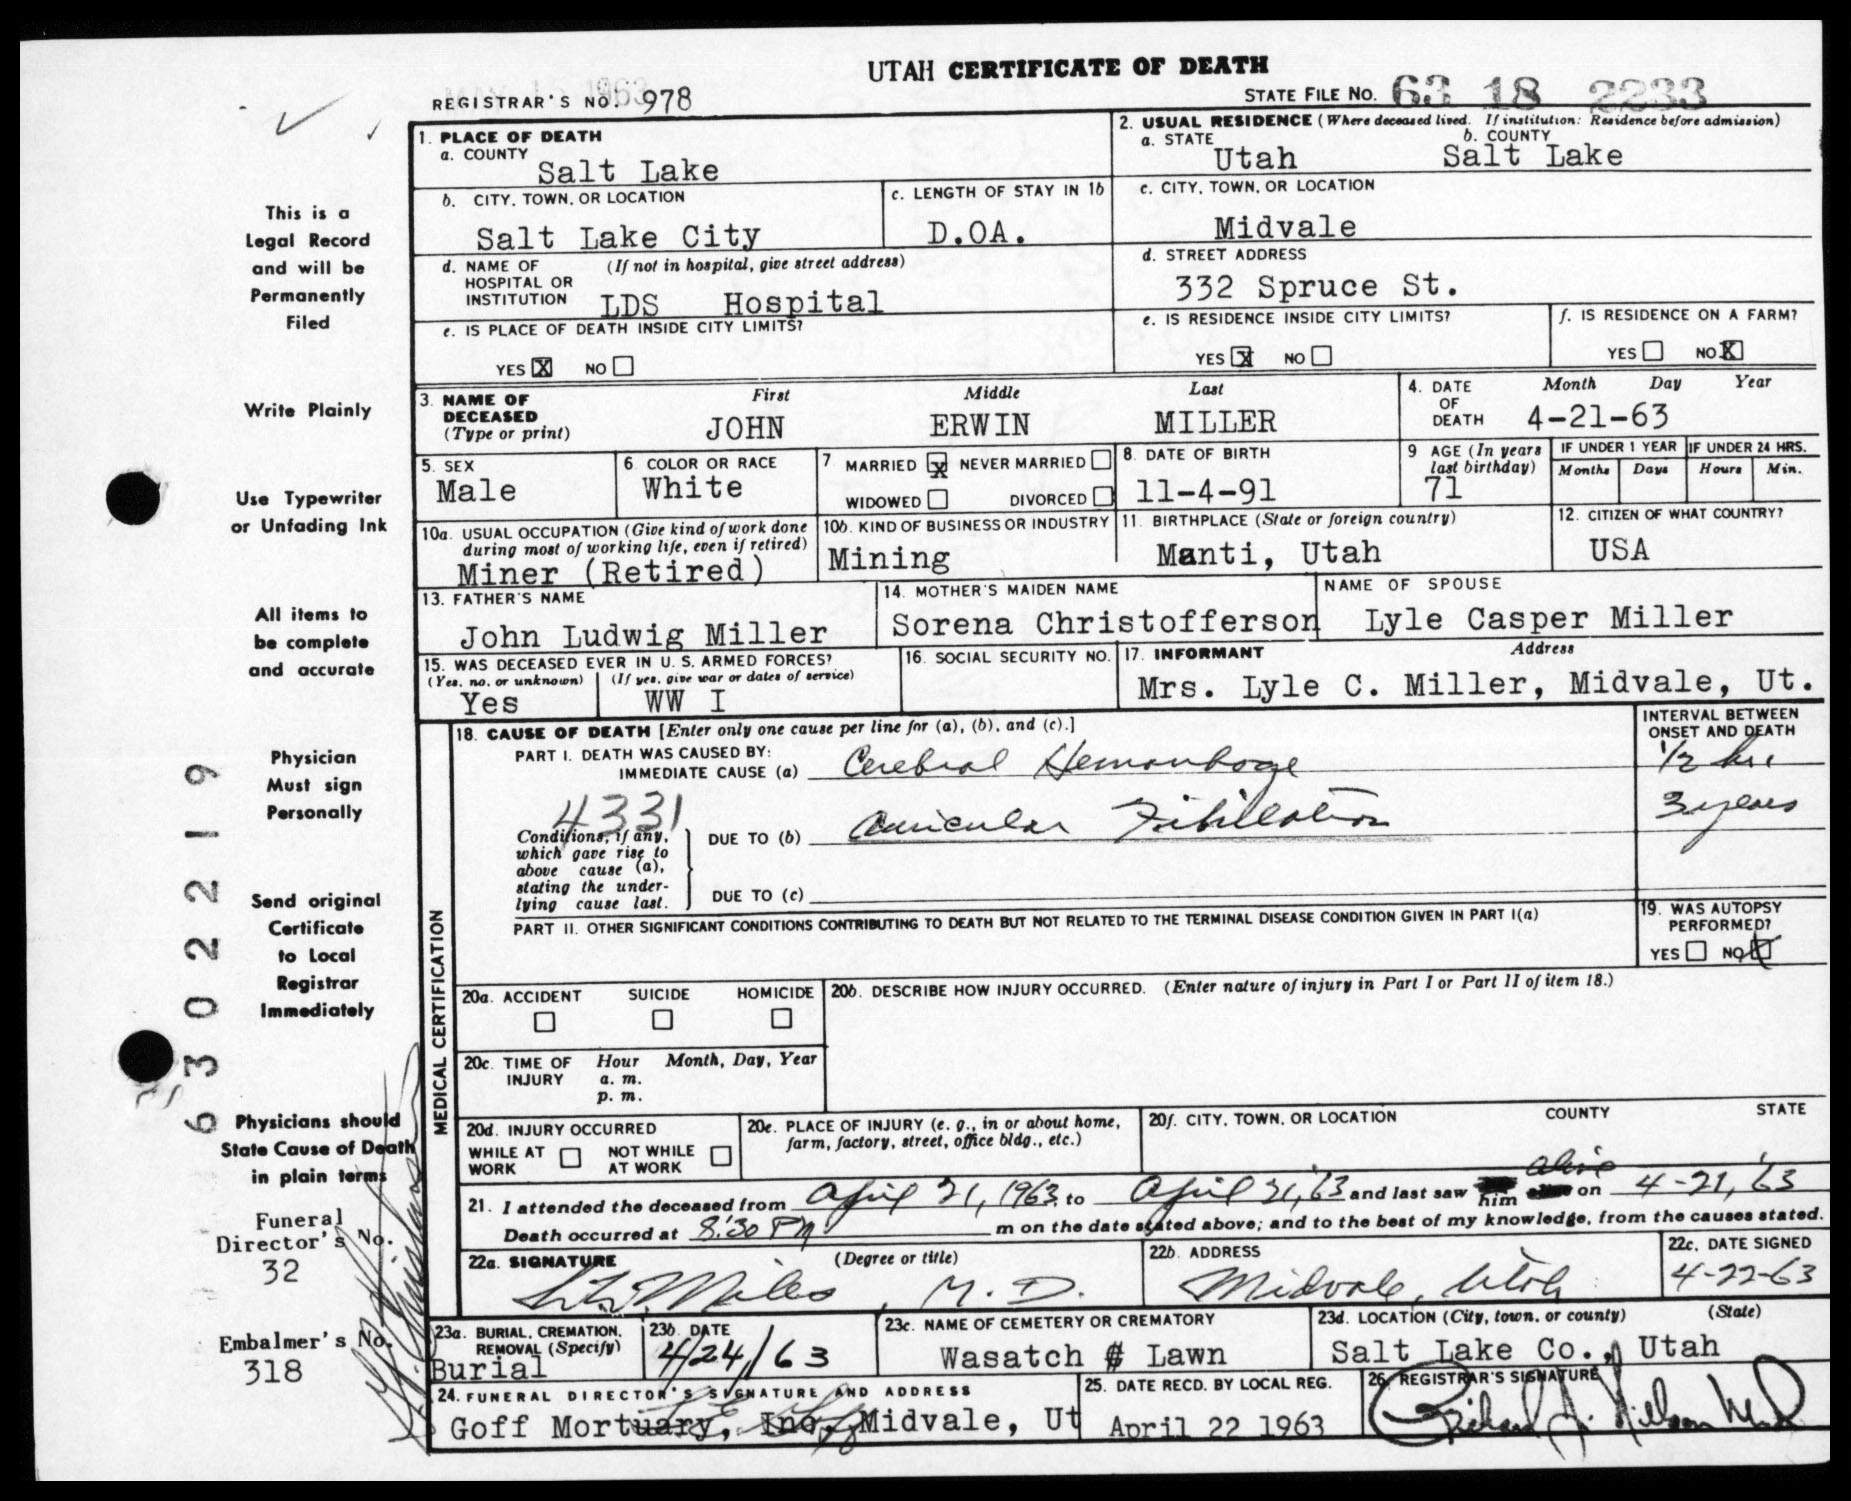 UTAH CERTIFICATE OF DEATH
MAY 15 1963
REGISTRAR'S NO. 978
STATE FILE NO. 63 18 2233
1. PLACE OF DEATH
a. COUNTY
Salt Lake
2. USUAL RESIDENCE (Where deceased lived. If institution: Residence before admission)
a. STATE b. COUNTY
Utah Salt Lake
b. CITY, TOWN, OR LOCATION
Salt Lake City
c. LENGTH OF STAY IN 1b
D.OA.
c. CITY, TOWN, OR LOCATION
Midvale
d. NAME OF HOSPITAL OR INSTITUTION (If not in hospital, give street address)
LDS Hospital
d. STREET ADDRESS
332 Spruce St.
e. IS PLACE OF DEATH INSIDE CITY LIMITS?
YES X NO
e. IS RESIDENCE INSIDE CITY LIMITS?
YES X NO
f. IS RESIDENCE ON A FARM?
YES NO X
3. NAME OF DECEASED (Type or print)
First Middle Last
JOHN ERWIN MILLER
4. DATE OF DEATH Month Day Year
4-21-63
5. SEX
Male
6. COLOR OR RACE
White
7 MARRIED X NEVER MARRIED
WIDOWED DIVORCED
8. DATE OF BIRTH
11-4-91
9 AGE (In years last birthday)
71
IF UNDER 1 YEAR
Months Days
IF UNDER 24 HRS.
Hours Min.
10a. USUAL OCCUPATION (Give kind of work done during most of working life, even if retired)
Miner (Retired)
10b. KIND OF BUSINESS OR INDUSTRY
Mining
11. BIRTHPLACE (State or foreign country)
Manti, Utah
12. CITIZEN OF WHAT COUNTRY?
USA
13. FATHER'S NAME
John Ludwig Miller
14. MOTHER'S MAIDEN NAME
Sorena Christofferson
NAME OF SPOUSE
Lyle Casper Miller
15. WAS DECEASED EVER IN U. S. ARMED FORCES?
(Yes, no, or unknown) (If yes, give war or dates of service)
Yes WW I
16. SOCIAL SECURITY NO.
17. INFORMANT Address
Mrs. Lyle C. Miller, Midvale, Ut.
MEDICAL CERTIFICATION
18. CAUSE OF DEATH [Enter only one cause per line for (a), (b), and (c).]
INTERVAL BETWEEN ONSET AND DEATH
PART I. DEATH WAS CAUSED BY:
IMMEDIATE CAUSE (a) Cerebral Hemorrhage 1/2 hr.
4331
Conditions, if any, which gave rise to above cause (a), stating the underlying cause last.
DUE TO (b) Auricular Fibrillation 3 years
DUE TO (c)
PART II. OTHER SIGNIFICANT CONDITIONS CONTRIBUTING TO DEATH BUT NOT RELATED TO THE TERMINAL DISEASE CONDITION GIVEN IN PART I(a)
19. WAS AUTOPSY PERFORMED?
YES NO X
20a. ACCIDENT SUICIDE HOMICIDE
20b. DESCRIBE HOW INJURY OCCURRED. (Enter nature of injury in Part I or Part II of item 18.)
20c. TIME OF INJURY Hour Month, Day, Year
a. m.
p. m.
20d. INJURY OCCURRED
WHILE AT WORK NOT WHILE AT WORK
20e. PLACE OF INJURY (e. g., in or about home, farm, factory, street, office bldg., etc.)
20f. CITY, TOWN, OR LOCATION COUNTY STATE
alive
21. I attended the deceased from April 21, 1963, to April 21, '63 and last saw him on 4-21, '63
Death occurred at 8:30 PM m on the date stated above; and to the best of my knowledge, from the causes stated.
22a. SIGNATURE (Degree or title)
Miles, M. D.
22b. ADDRESS
Midvale, Utah
22c. DATE SIGNED
4-22-63
23a. BURIAL, CREMATION, REMOVAL (Specify)
Burial
23b. DATE
4/24/63
23c. NAME OF CEMETERY OR CREMATORY
Wasatch Lawn
23d. LOCATION (City, town, or county) (State)
Salt Lake Co., Utah
24. FUNERAL DIRECTOR'S SIGNATURE AND ADDRESS
Goff Mortuary, Inc, Midvale, Ut
25. DATE RECD. BY LOCAL REG.
April 22 1963
26. REGISTRAR'S SIGNATURE
Richard J. Nelson
This is a
Legal Record
and will be
Permanently
Filed
Write Plainly
Use Typewriter
or Unfading Ink
All items to
be complete
and accurate
Physician
Must sign
Personally
Send original
Certificate
to Local
Registrar
Immediately
Physicians should
State Cause of Death
in plain terms
Funeral
Director's No.
32
Embalmer's No.
318
63022219